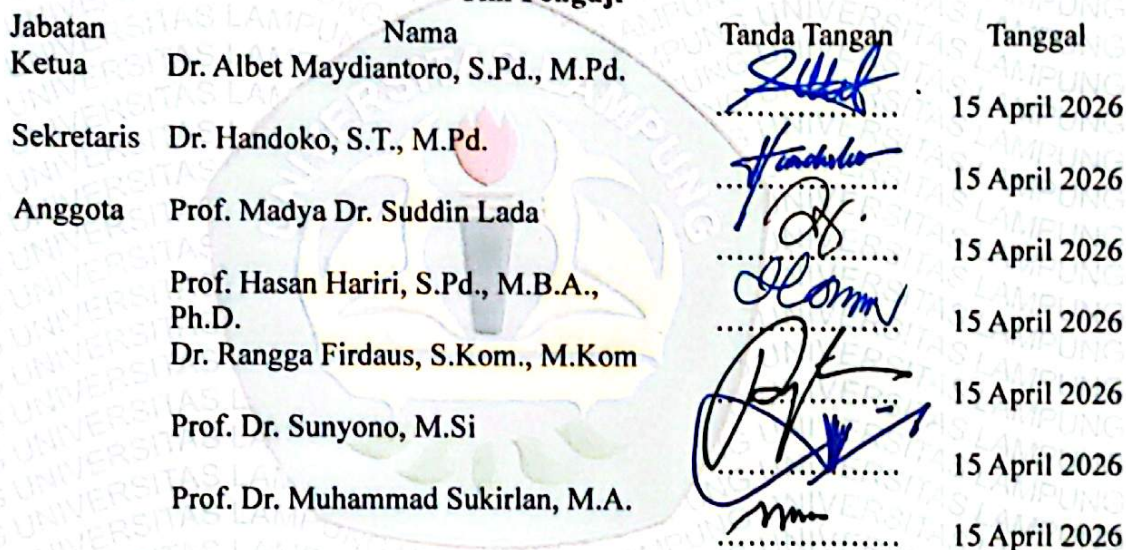 Jabatan Nama Tanda Tangan Tanggal
Ketua Dr. Albet Maydiantoro, S.Pd., M.Pd.
15 April 2026
Sekretaris Dr. Handoko, S.T., M.Pd.
15 April 2026
Anggota Prof. Madya Dr. Suddin Lada
15 April 2026
Prof. Hasan Hariri, S.Pd., M.B.A.,
Ph.D. 15 April 2026
Dr. Rangga Firdaus, S.Kom., M.Kom
15 April 2026
Prof. Dr. Sunyono, M.Si
15 April 2026
Prof. Dr. Muhammad Sukirlan, M.A.
15 April 2026